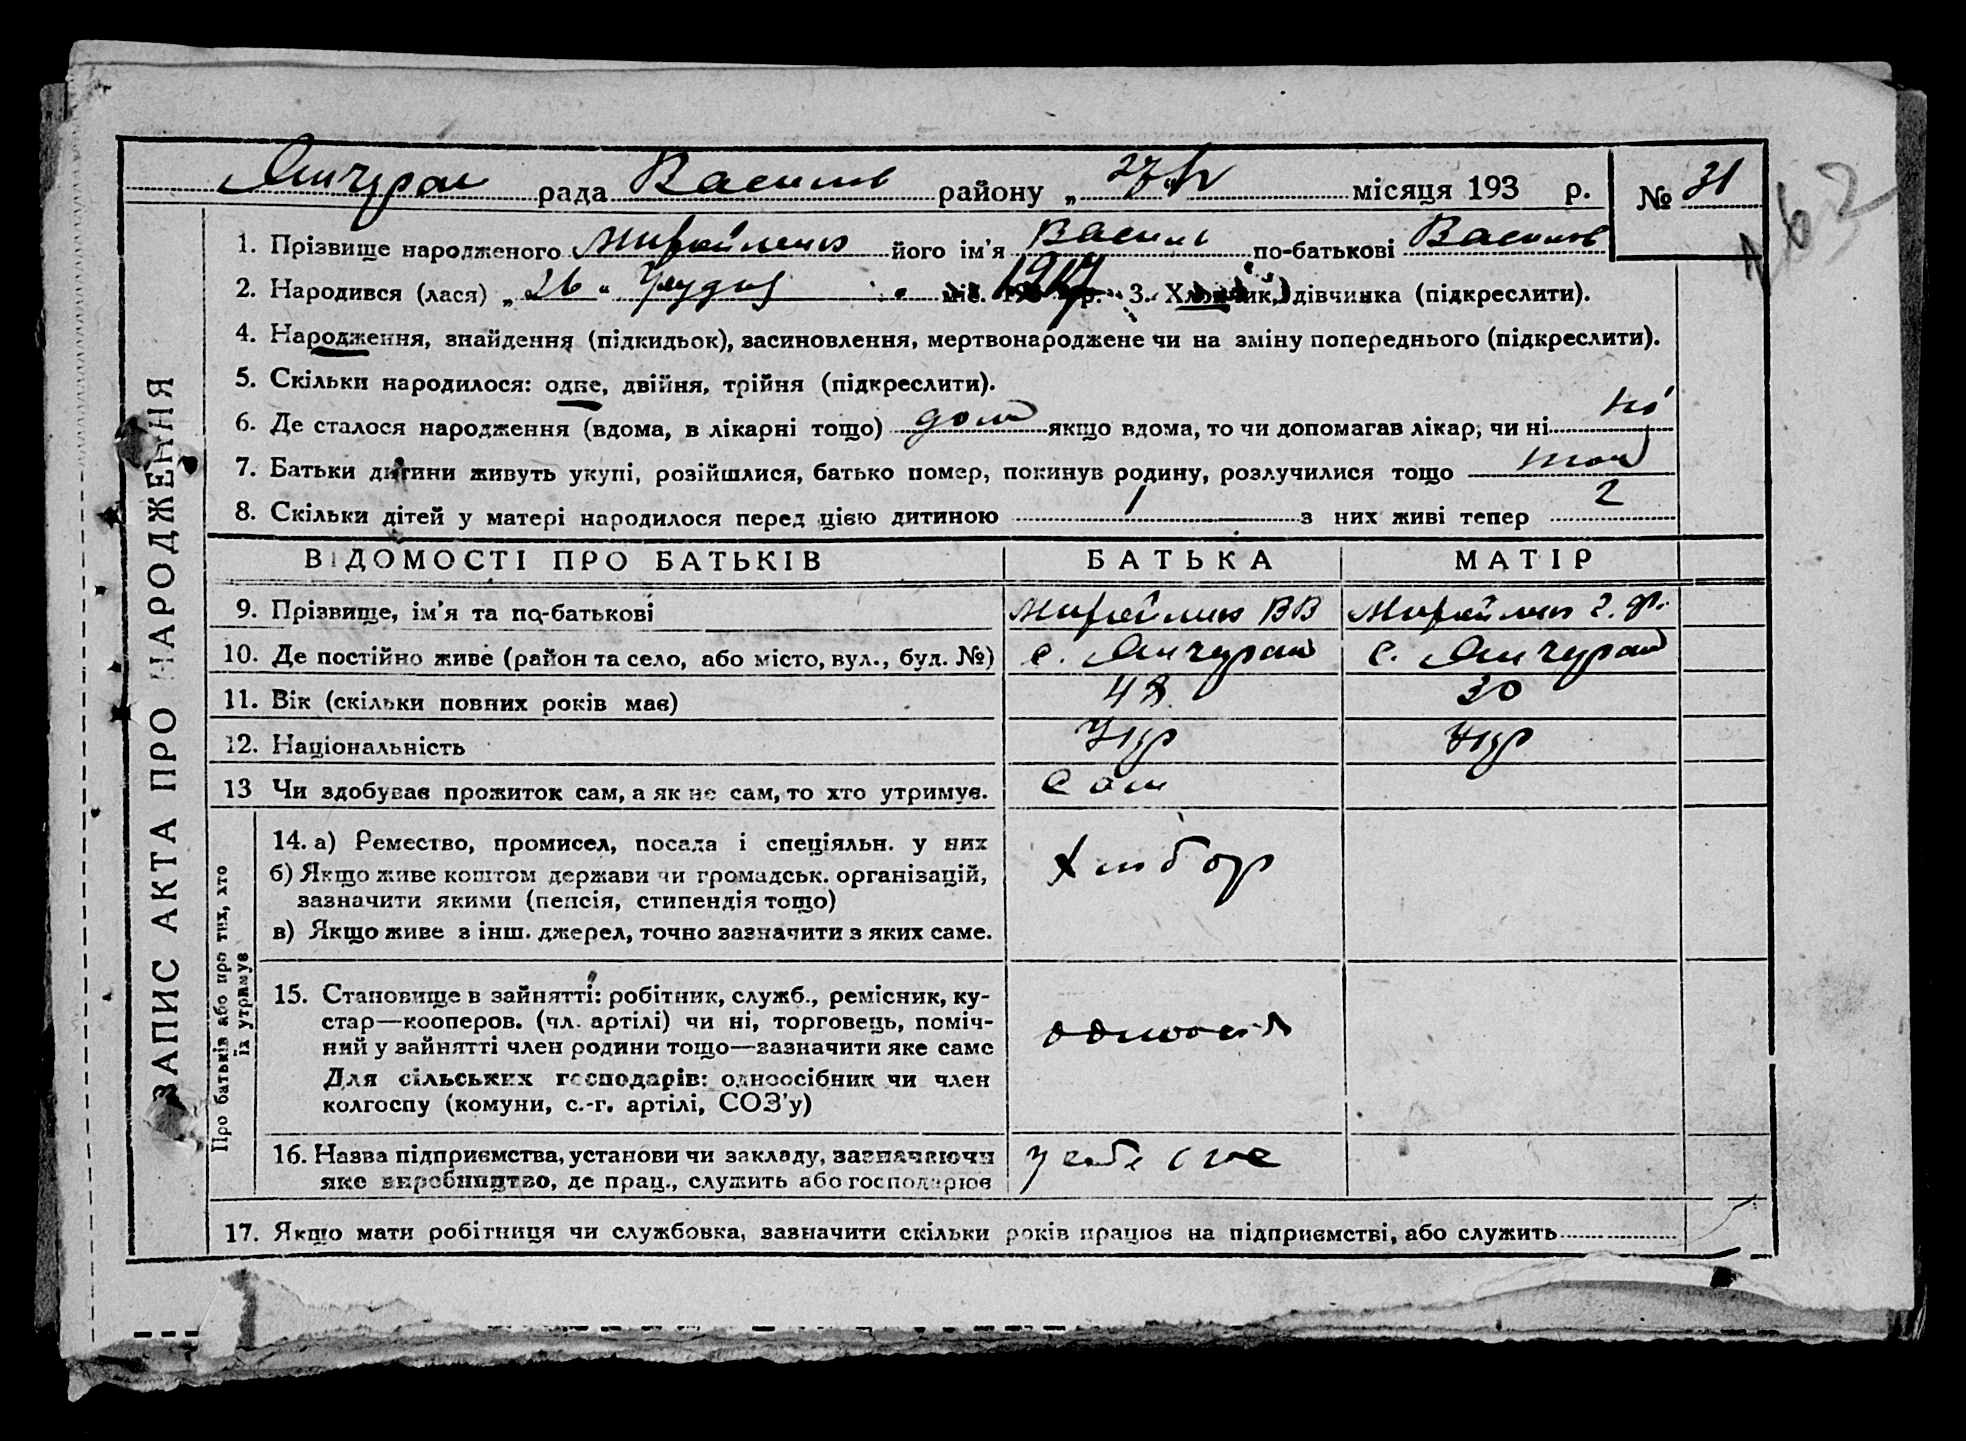 Янчурак рада Васильк району „27“ IV місяця 193 р. № 31
162
ЗАПИС АКТА ПРО НАРОДЖЕННЯ
1. Прізвище народженого його ім’я Василь по-батькові Васильов
2. Народився (лася) „26“ Грудня міс. 1917 р. 3. Хлопчик, дівчинка (підкреслити).
4. Народження, знайдення (підкидьок), засиновлення, мертвонароджене чи на зміну попереднього (підкреслити).
5. Скільки народилося: одне, двійня, трійня (підкреслити).
6. Де сталося народження (вдома, в лікарні тощо) дома якщо вдома, то чи допомагав лікар, чи ні ні
7. Батьки дитини живуть укупі, розійшлися, батько помер, покинув родину, розлучилися тощо
8. Скільки дітей у матері народилося перед цією дитиною 1 з них живі тепер 2
ВІДОМОСТІ ПРО БАТЬКІВ БАТЬКА МАТІР
9. Прізвище, ім’я та по-батькові В В
10. Де постійно живе (район та село, або місто, вул., буд. №) с. Янчурак с. Янчурак
11. Вік (скільки повних років має) 48 30
12. Національність Укр Укр
13 Чи здобуває прожиток сам, а як не сам, то хто утримує. Сам
Про батьків або про тих, хто їх утримує
14. а) Ремество, промисел, посада і спеціяльн. у них
б) Якщо живе коштом держави чи громадськ. організацій,
зазначити якими (пенсія, стипендія тощо)
в) Якщо живе з інш. джерел, точно зазначити з яких саме.
Хлібор
15. Становище в зайнятті: робітник, служб., ремісник, ку-
стар—кооперов. (чл. артілі) чи ні, торговець, поміч-
ний у зайнятті член родини тощо—зазначити яке саме
Для сільських господарів: одноосібник чи член
колгоспу (комуни, с.-г. артілі, СОЗ’у)
одноосіб
16. Назва підприємства, установи чи закладу, зазначаючи
яке виробництво, де прац., служить або господарює
у себе
17. Якщо мати робітниця чи службовка, зазначити скільки років працює на підприємстві, або служить